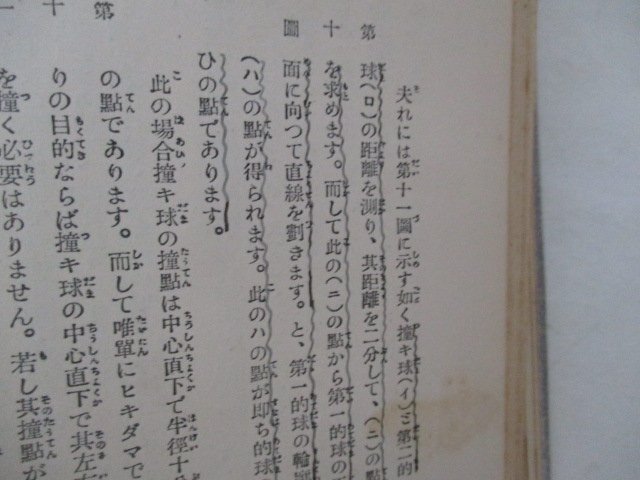 夫れには第十一圖に示す如く撞キ球(イ)と第二的
球(ロ)の距離を測り、其距離を二分して、(ニ)の點
を求めます。而して此の(ニ)の點から第一的球の
面に向つて直線を劃きます。と、第一的球の輪
(ハ)の點が得られます。此のハの點が即ち的球
ひの點であります。
此の場合撞キ球の撞點は中心直下で半徑十
の點であります。而して唯單にヒキダマで
りの目的ならば撞キ球の中心直下で其左
を撞く必要はありません。若し其撞點が
第十圖
第十一